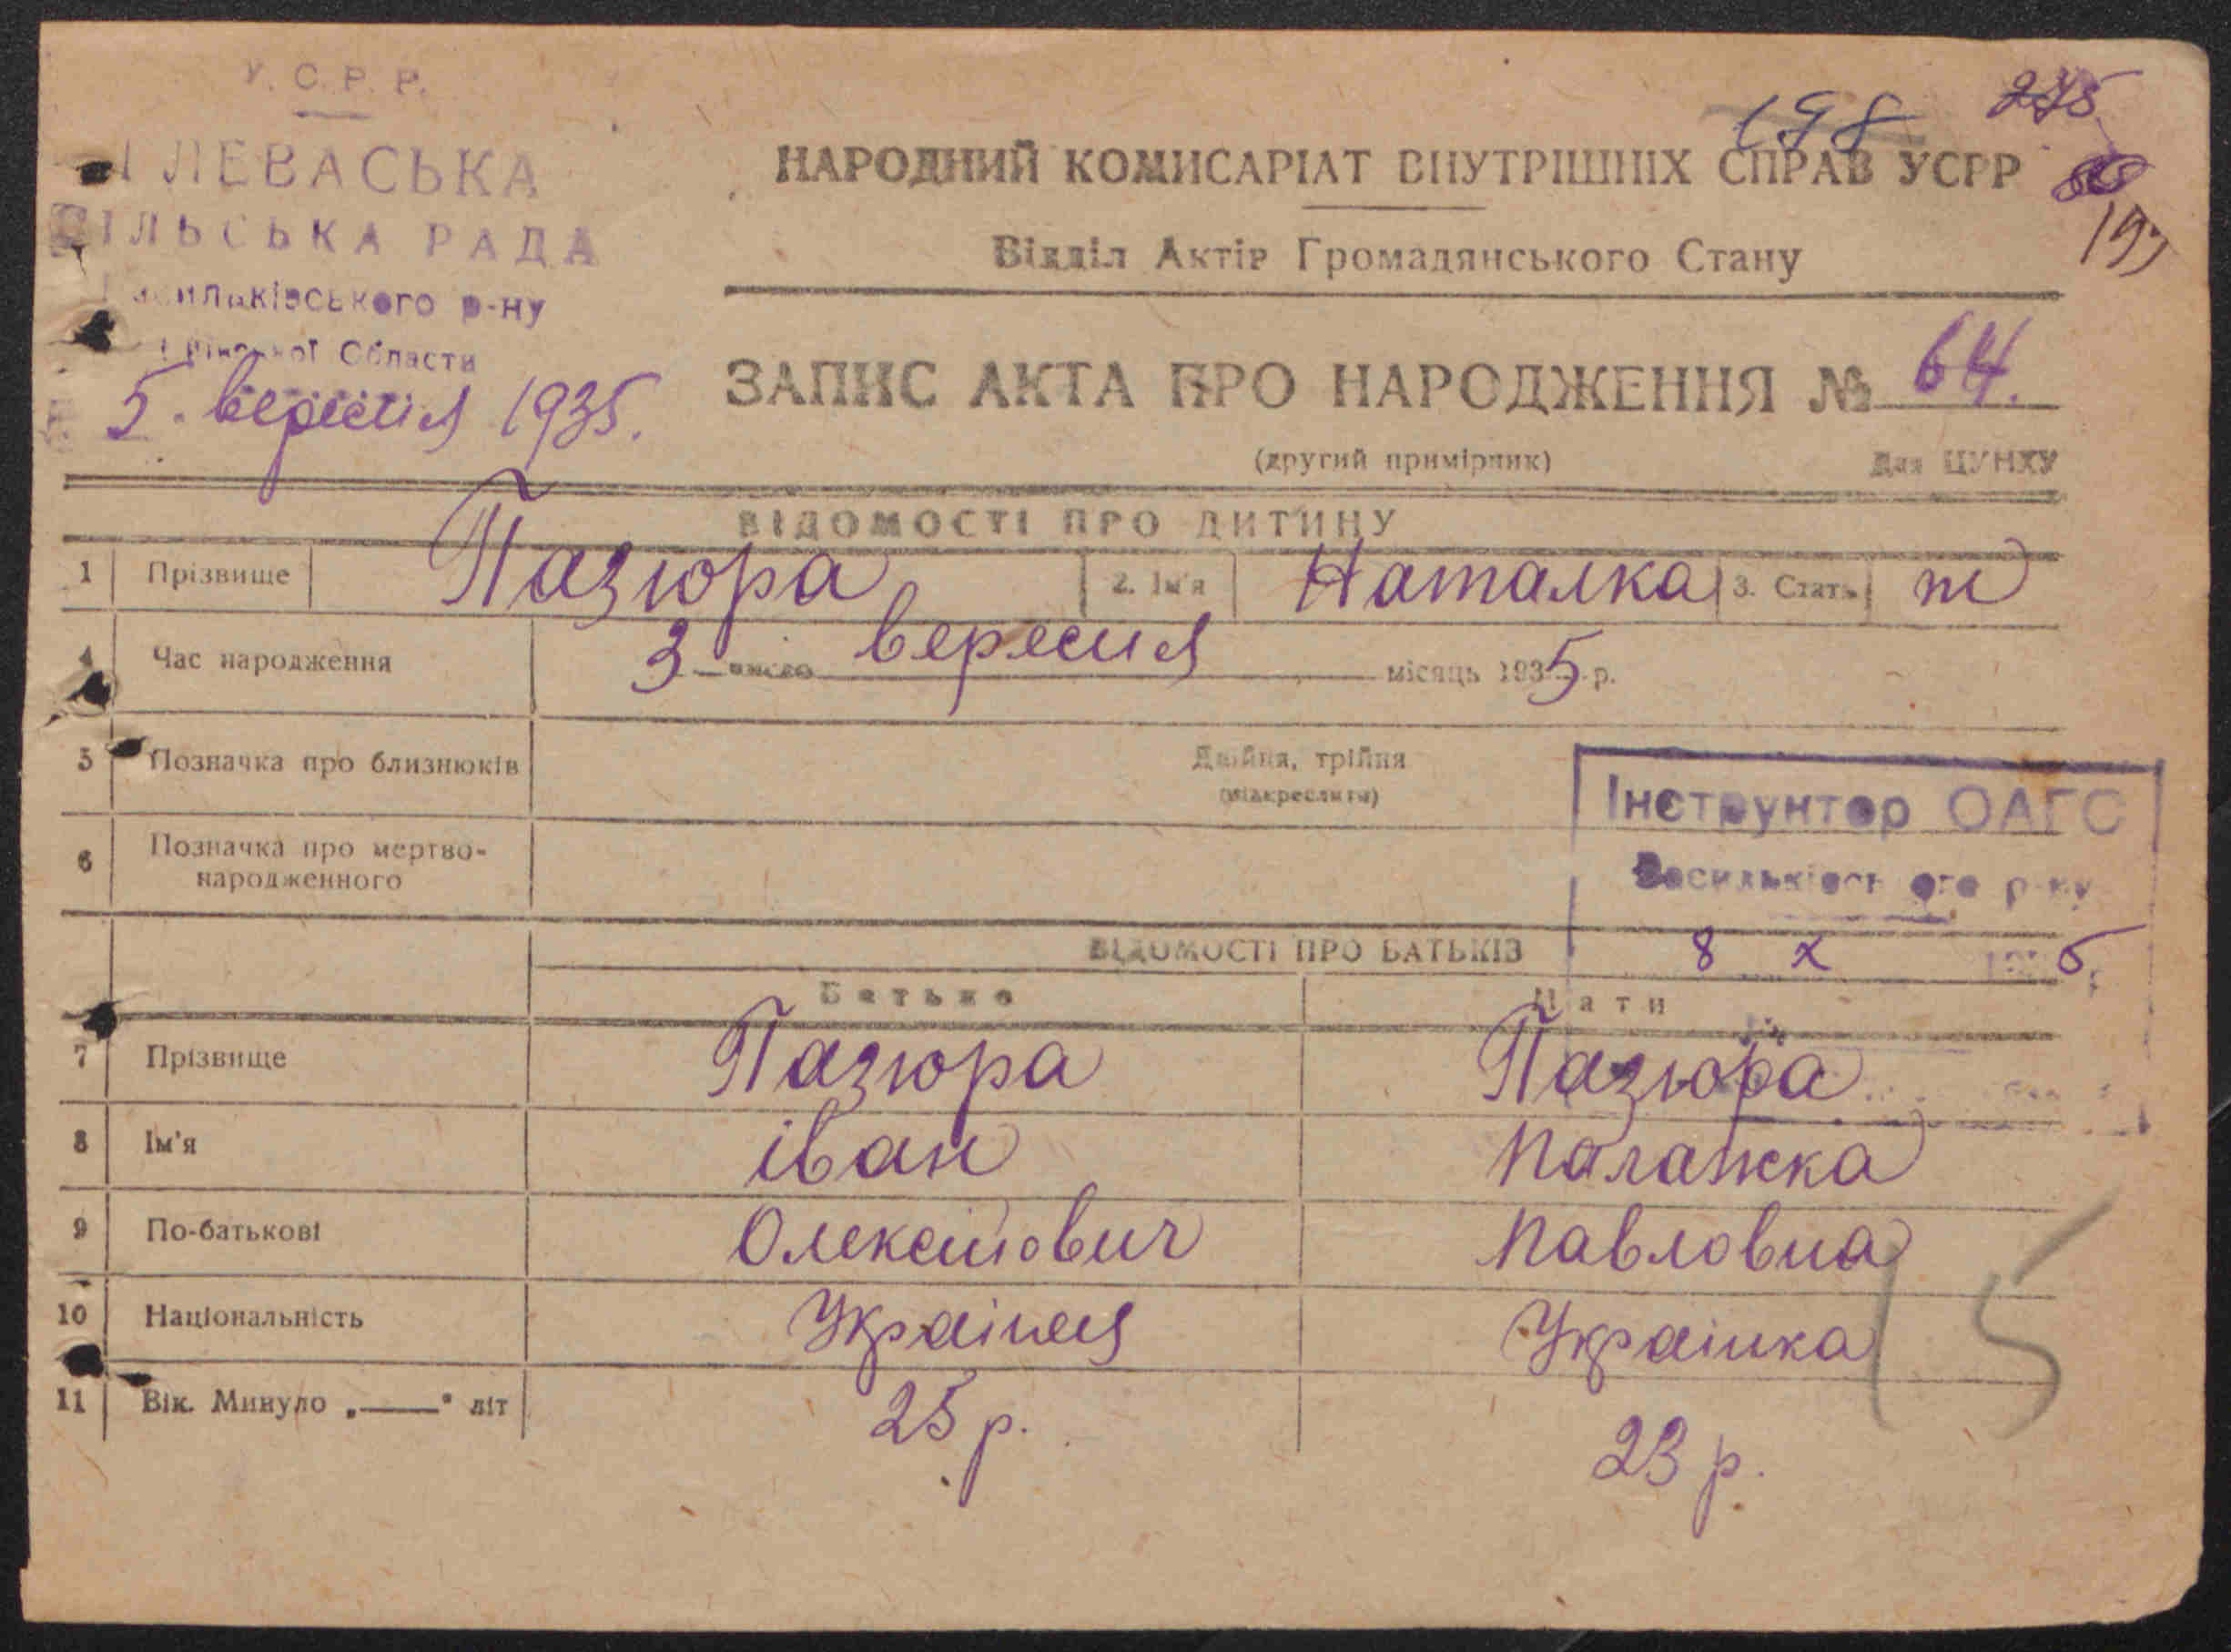 У.С.Р.Р.
ЛЕВАСЬКА
СІЛЬСЬКА РАДА
р-ну
Області
5. вересня 1935.
198 275
НАРОДНИЙ КОМИСАРІАТ ВНУТРІШНІХ СПРАВ УСРР
Відділ Актів Громадянського Стану
ЗАПИС АКТА ПРО НАРОДЖЕННЯ № 64.
(другий примірник) Для ЦУНХУ
ВІДОМОСТІ ПРО ДИТИНУ
1 Прізвище Пазюра 2. Ім'я Наталка 3. Стать ж
4 Час народження 3 число вересня місяць 1935 р.
5 Позначка про близнюків Двійня, трійня
(підкреслити)
6 Позначка про мертво-
народженного
Інструктор ОАГС
Васильківського р-ну
8 X
ВІДОМОСТІ ПРО БАТЬКІВ
Батько Мати
7 Прізвище Пазюра Пазюра
8 Ім'я іван Палажка
9 По-батькові Олексійович Павловна
10 Національність Українец Українка
11 Вік. Минуло „——" літ 25 р. 23 р.
15